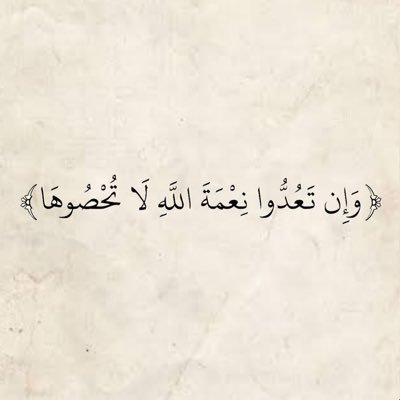 ﴿وَإِن تَعُدُّوا نِعْمَةَ اللَّهِ لَا تُحْصُوهَا﴾